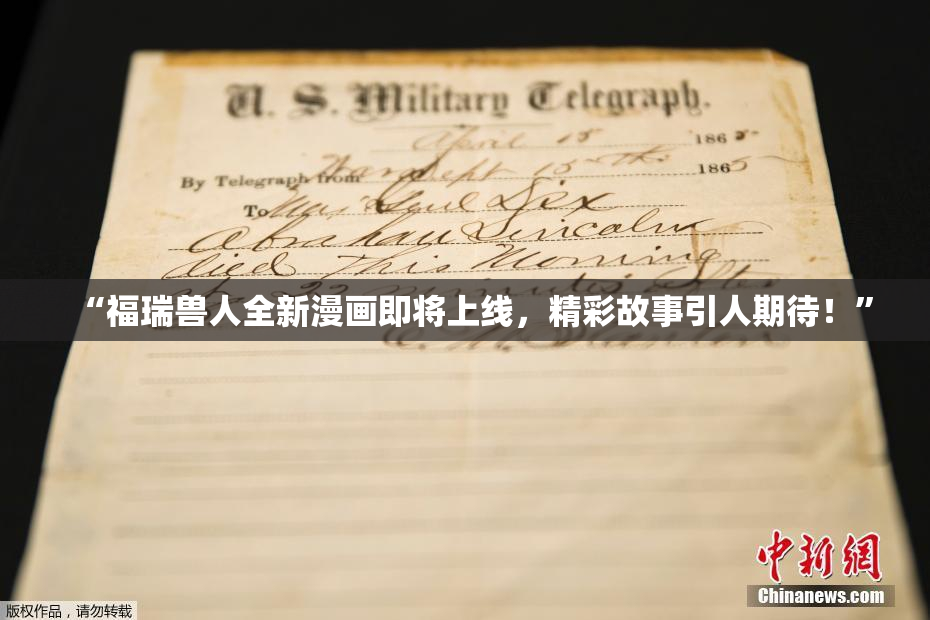 U. S. Military Telegraph.
April 15 1865
By Telegraph from War Dept 15th 1865
To Maj Genl Dix
Abraham Lincoln
died This Morning
at 22 minutes after
“福瑞兽人全新漫画即将上线，精彩故事引人期待！”
E. M. Stanton
中新網
Chinanews.com
版权作品，请勿转载